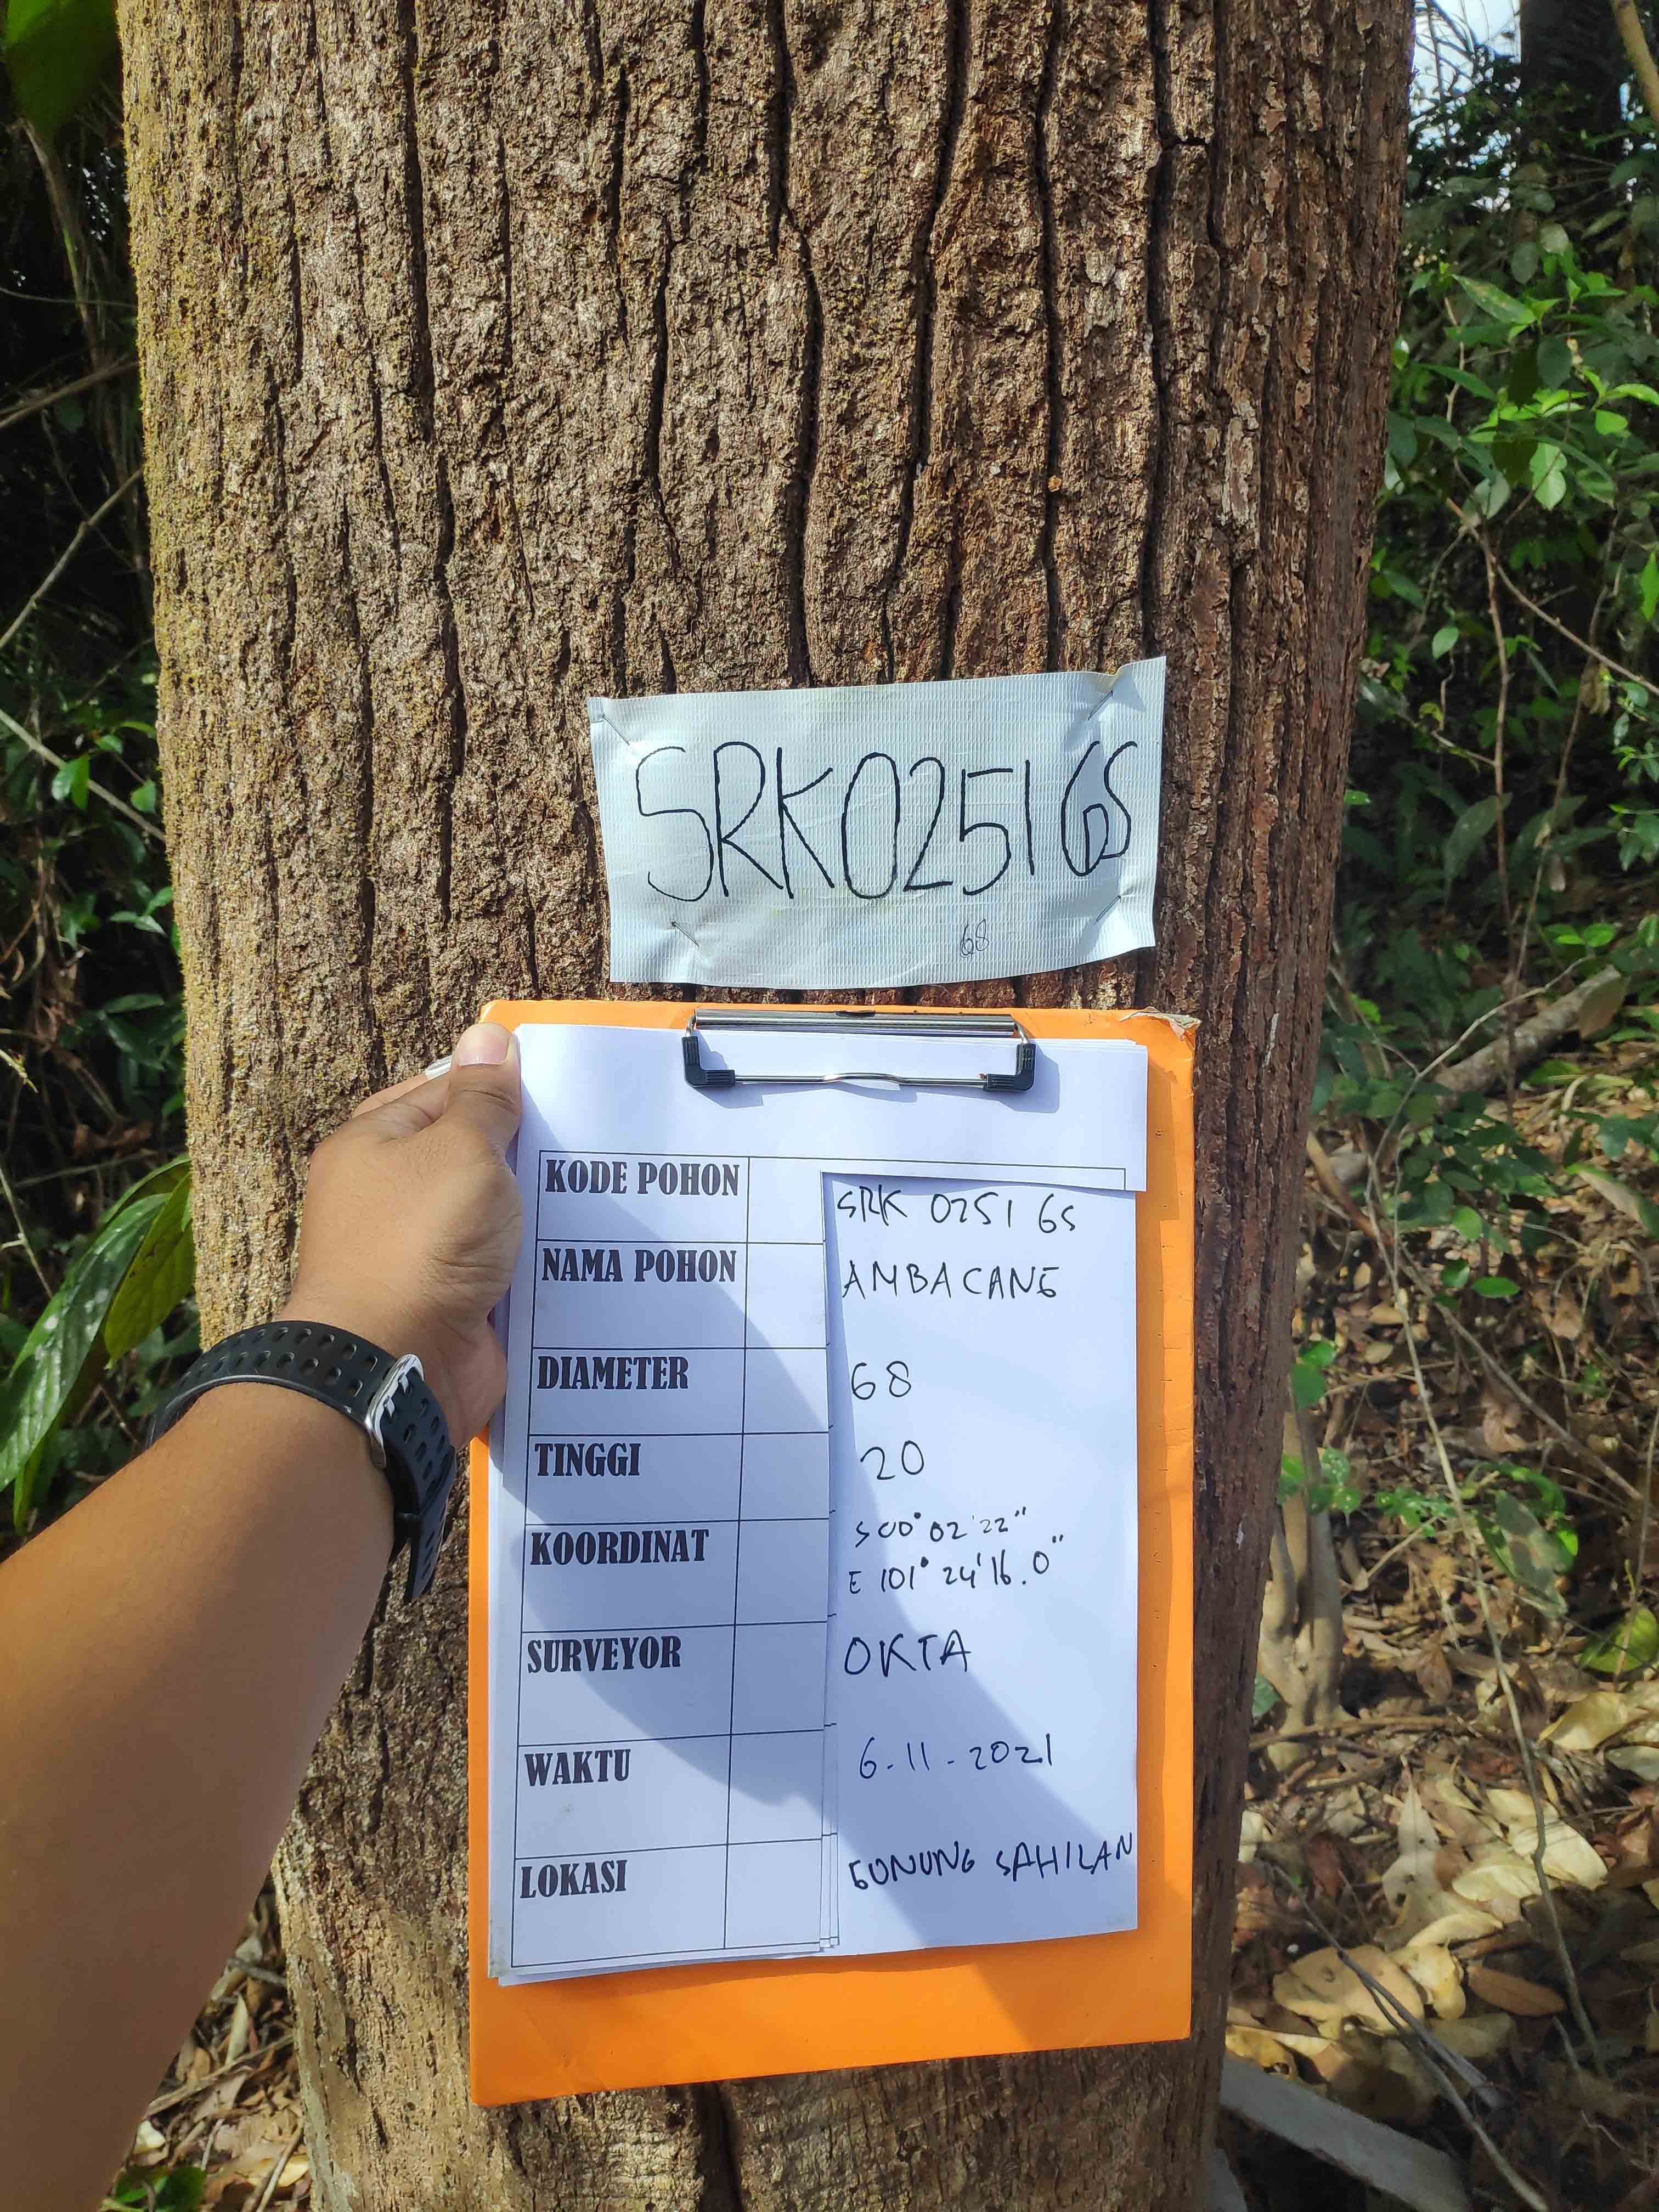 SRK0251GS
68
KODE POHON SRK 0251 GS
NAMA POHON AMBACANG
DIAMETER 68
TINGGI 20
KOORDINAT S 00° 02' 22"
E 101° 24' 16.0"
SURVEYOR OKTA
WAKTU 6-11-2021
LOKASI GUNUNG SAHILAN